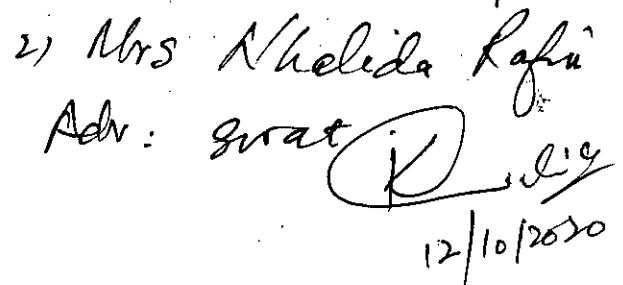 2) Mrs Khalida Rafiu
Adv: Surat
12/10/2020